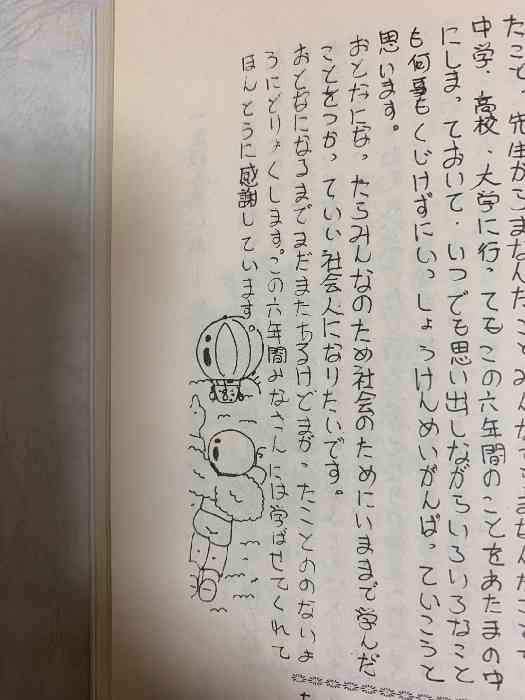 たこと、先生から
中学、高校、大学に行ってもこの六年間のことをあたまの中
にしまっておいて、いつでも思い出しながらいろいろなこと
も何事もくじけずにいっしょうけんめいがんばっていこうと
思います。
おとなになったらみんなのため社会のためにいままで学んだ
ことをつかっていい社会人になりたいです。
おとなになるまでまだまたあるけどまがったことののないよ
うにどりょくします。この六年間みなさんには学ばせてくれて
ほんとうに感謝しています。